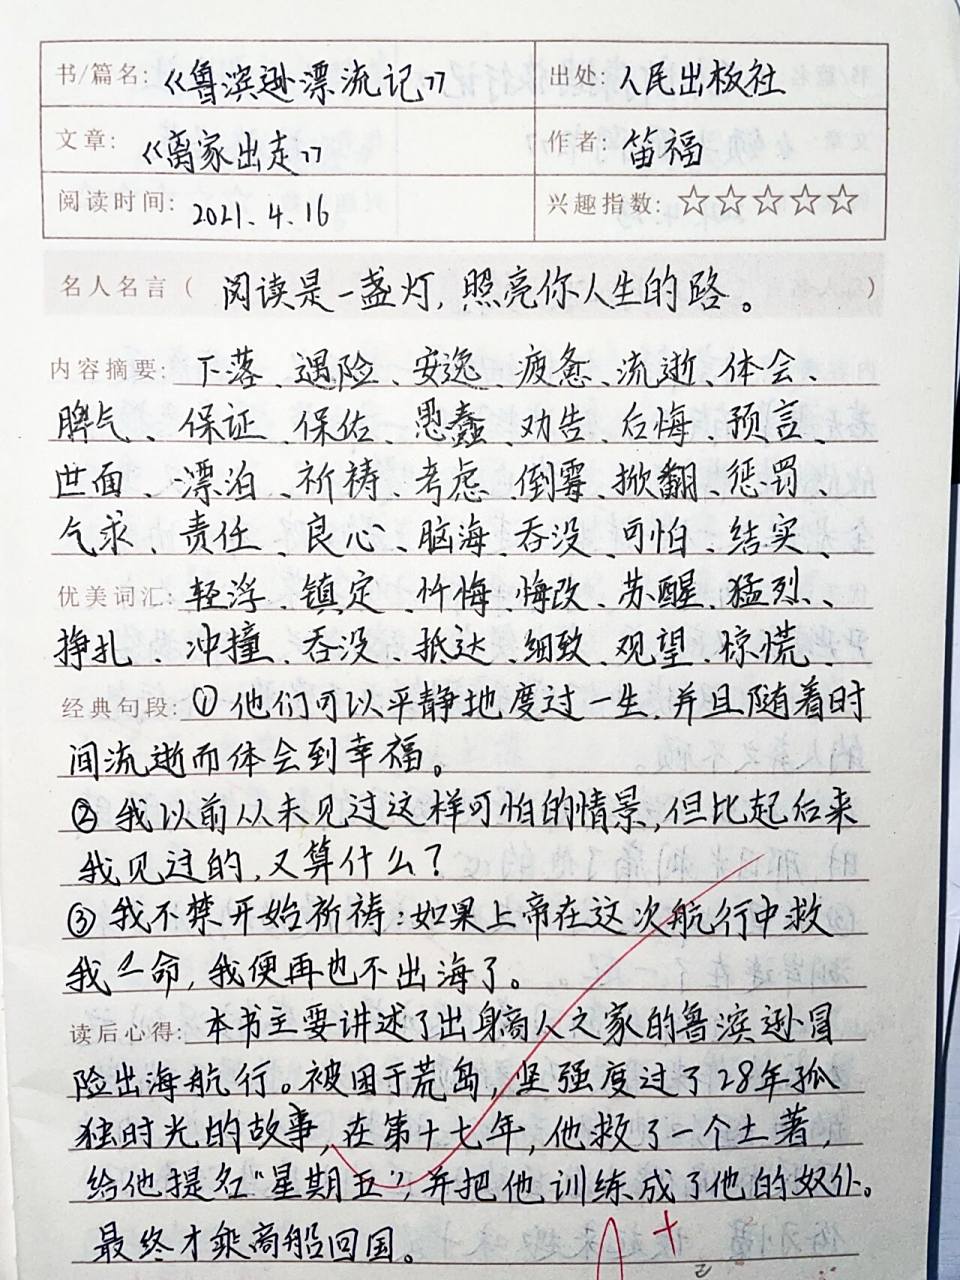 书/篇名: 《鲁滨逊漂流记》 出处: 人民出板社
文章: 《离家出走》 作者: 笛福
阅读时间: 2021.4.16 兴趣指数: ☆☆☆☆☆
名人名言( 阅读是一盏灯,照亮你人生的路。 )
内容摘要: 下落、遇险、安逸、疲惫、流逝、体会、
脾气、保证、保佑、愚蠢、劝告、后悔、预言、
世面、漂泊、祈祷、考虑、倒霉、掀翻、惩罚、
气求、责任、良心、脑海、吞没、可怕、结实、
优美词汇: 轻浮、镇定、忏悔、悔改、苏醒、猛烈、
挣扎、冲撞、吞没、抵达、细致、观望、惊慌、
经典句段: ①他们可以平静地度过一生,并且随着时
间流逝而体会到幸福。
②我以前从未见过这样可怕的情景,但比起后来
我见过的,又算什么?
③我不禁开始祈祷:如果上帝在这次航行中救
我一命,我便再也不出海了。
读后心得: 本书主要讲述了出身商人之家的鲁滨逊冒
险出海航行。被困于荒岛,坚强度过了28年孤
独时光的故事,在第十七年,他救了一个土著,
给他提名“星期五”,并把他训练成了他的奴仆。
最终才乘商船回国。